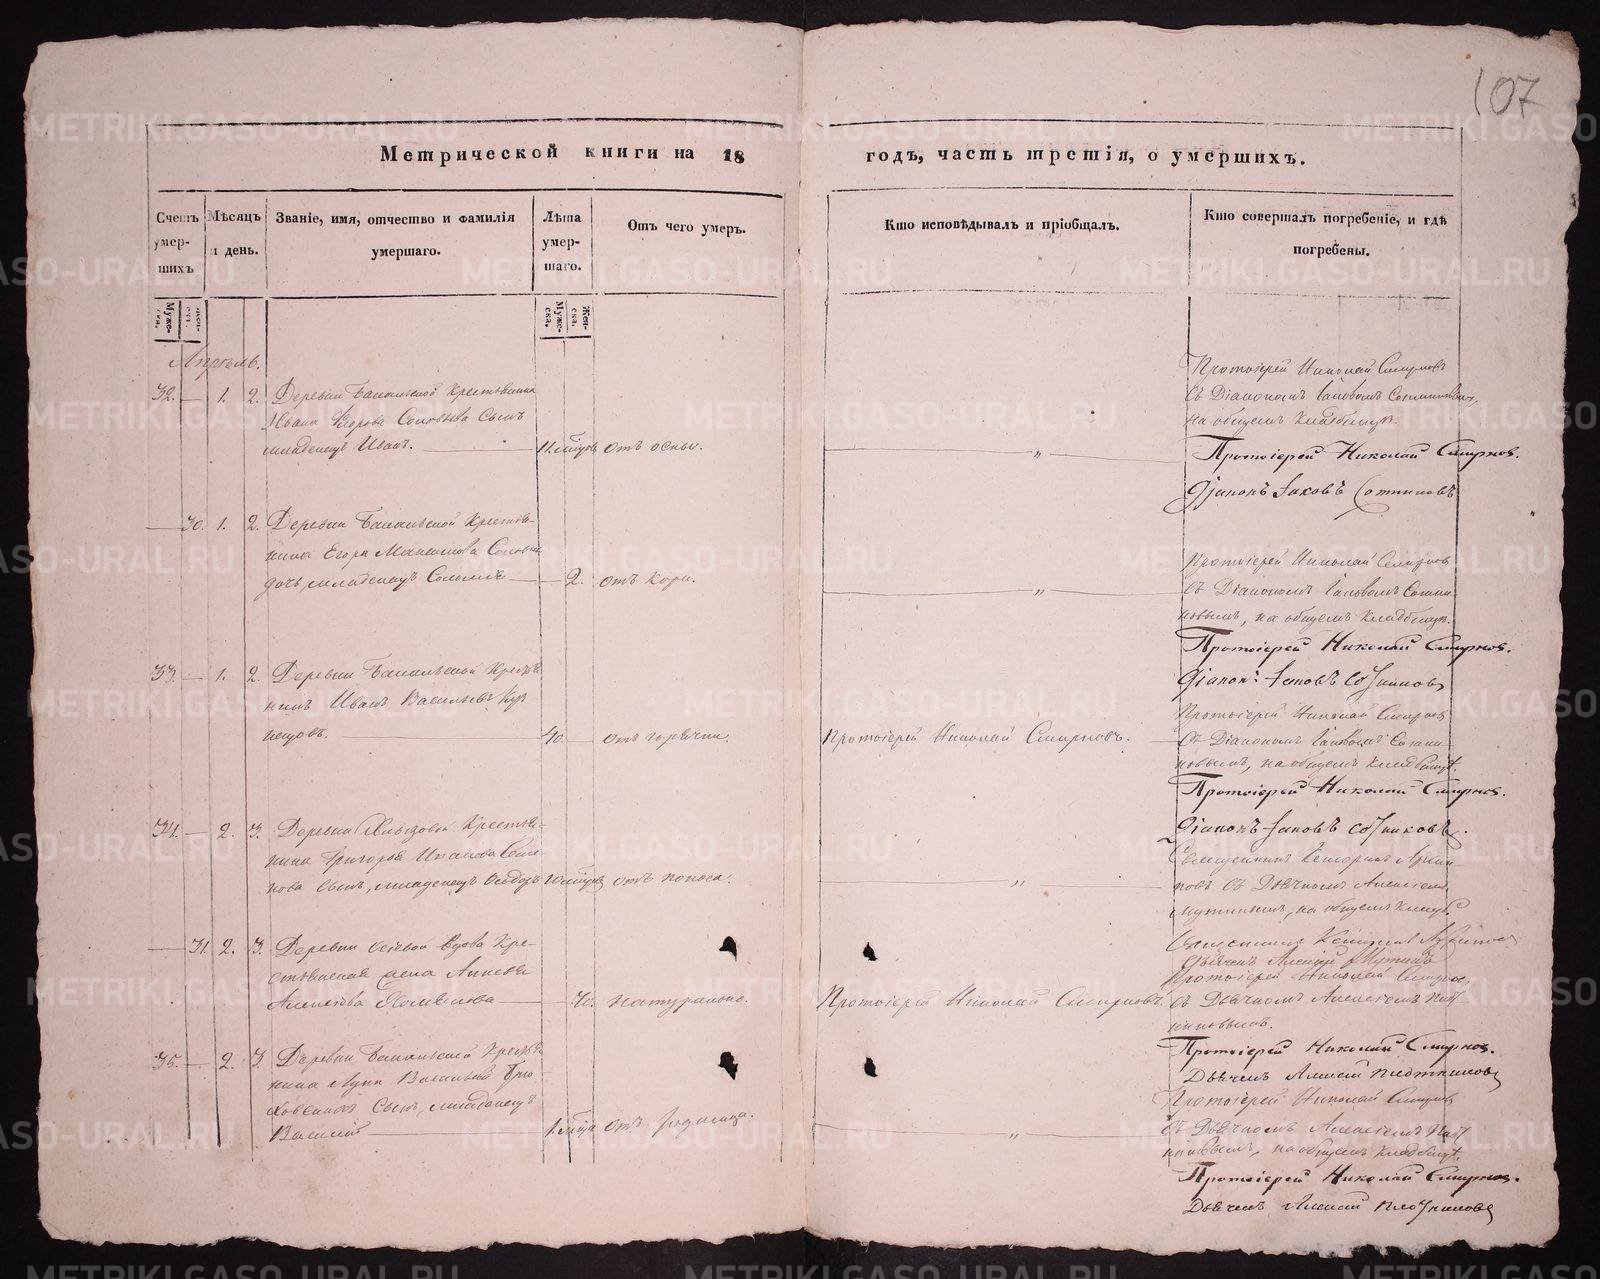 107
Метрической книги на 18 годъ, часть третія, о умершихъ.
Счетъ умер-шихъ
Мѣсяцъ и день.
Званіе, имя, отчество и фамилія умершаго.
Лѣта умер-шаго.
Отъ чего умеръ.
Кто исповѣдывалъ и пріобщалъ.
Кто совершалъ погребеніе, и гдѣ погребены.
Муже-ска.
Жен-ска.
Муже-ска.
Жен-ска.
Апрѣль.
32. — 1. 2. Деревни Крестьянина
Ивана Егорова Соловьева Сынъ
младенецъ Иванъ. — 11. мѣсяц. отъ оспы. — „ —
Протоіерей Николай Смирновъ
Съ Діакономъ Іаковомъ
на общемъ кладбищѣ.
Протоіерей Николай Смирнов.
Діаконъ Іаковъ Сотниковъ
— 30. 1. 2. Деревни Крестья-
нина Егора
дочь, младенецъ — 2. отъ кори. — „ —
Протоіерей Николай Смирнов
Съ Діакономъ Іаковомъ Сотни-
ковымъ, на общемъ кладбищѣ.
Протоіерей Николай Смирнов.
Діаконъ Іаковъ Сотников
33. — 1. 2. Деревни Крестья
нинъ Иванъ Васильевъ Куз
нецовъ. — 40. отъ горячки. Протоіерей Николай Смирновъ. —
Протоіерей Николай Смирнов
Съ Діакономъ Іаковомъ Сотни-
ковымъ, на общемъ кладбищѣ.
Протоіерей Николай Смирнов.
Діаконъ Іаковъ Сотниковъ.
34. — 2. 3. Деревни Крестья-
нина Григорья Семе-
нова Сынъ, младенецъ Ѳеодоръ отъ поноса. — „ —
Священникъ
съ Дьячкомъ Алексѣемъ
на общемъ
Священникъ
Дьячекъ Алексій
— 31. 2. 3. Деревни Вдова Кре-
стьянская жена
— 70. натурально. Протоіерей Николай Смирновъ.
Протоіерей Николай Смирнов,
Съ Дьячкомъ Алексѣемъ Плот
никовымъ.
Протоіерей Николай Смирнов.
Дьячекъ Алексій Плотников
35. — 2. 3. Деревни Крестья
нина
Сынъ, младенецъ
Василій — 1. мѣсяца отъ родимца. — „ —
Протоіерей Николай Смирнов
Съ Дьячкомъ Алексѣемъ Плот
никовымъ, на общемъ кладбищѣ.
Протоіерей Николай Смирнов.
Дьячекъ Алексій Плотников
METRIKI.GASO-URAL.RU